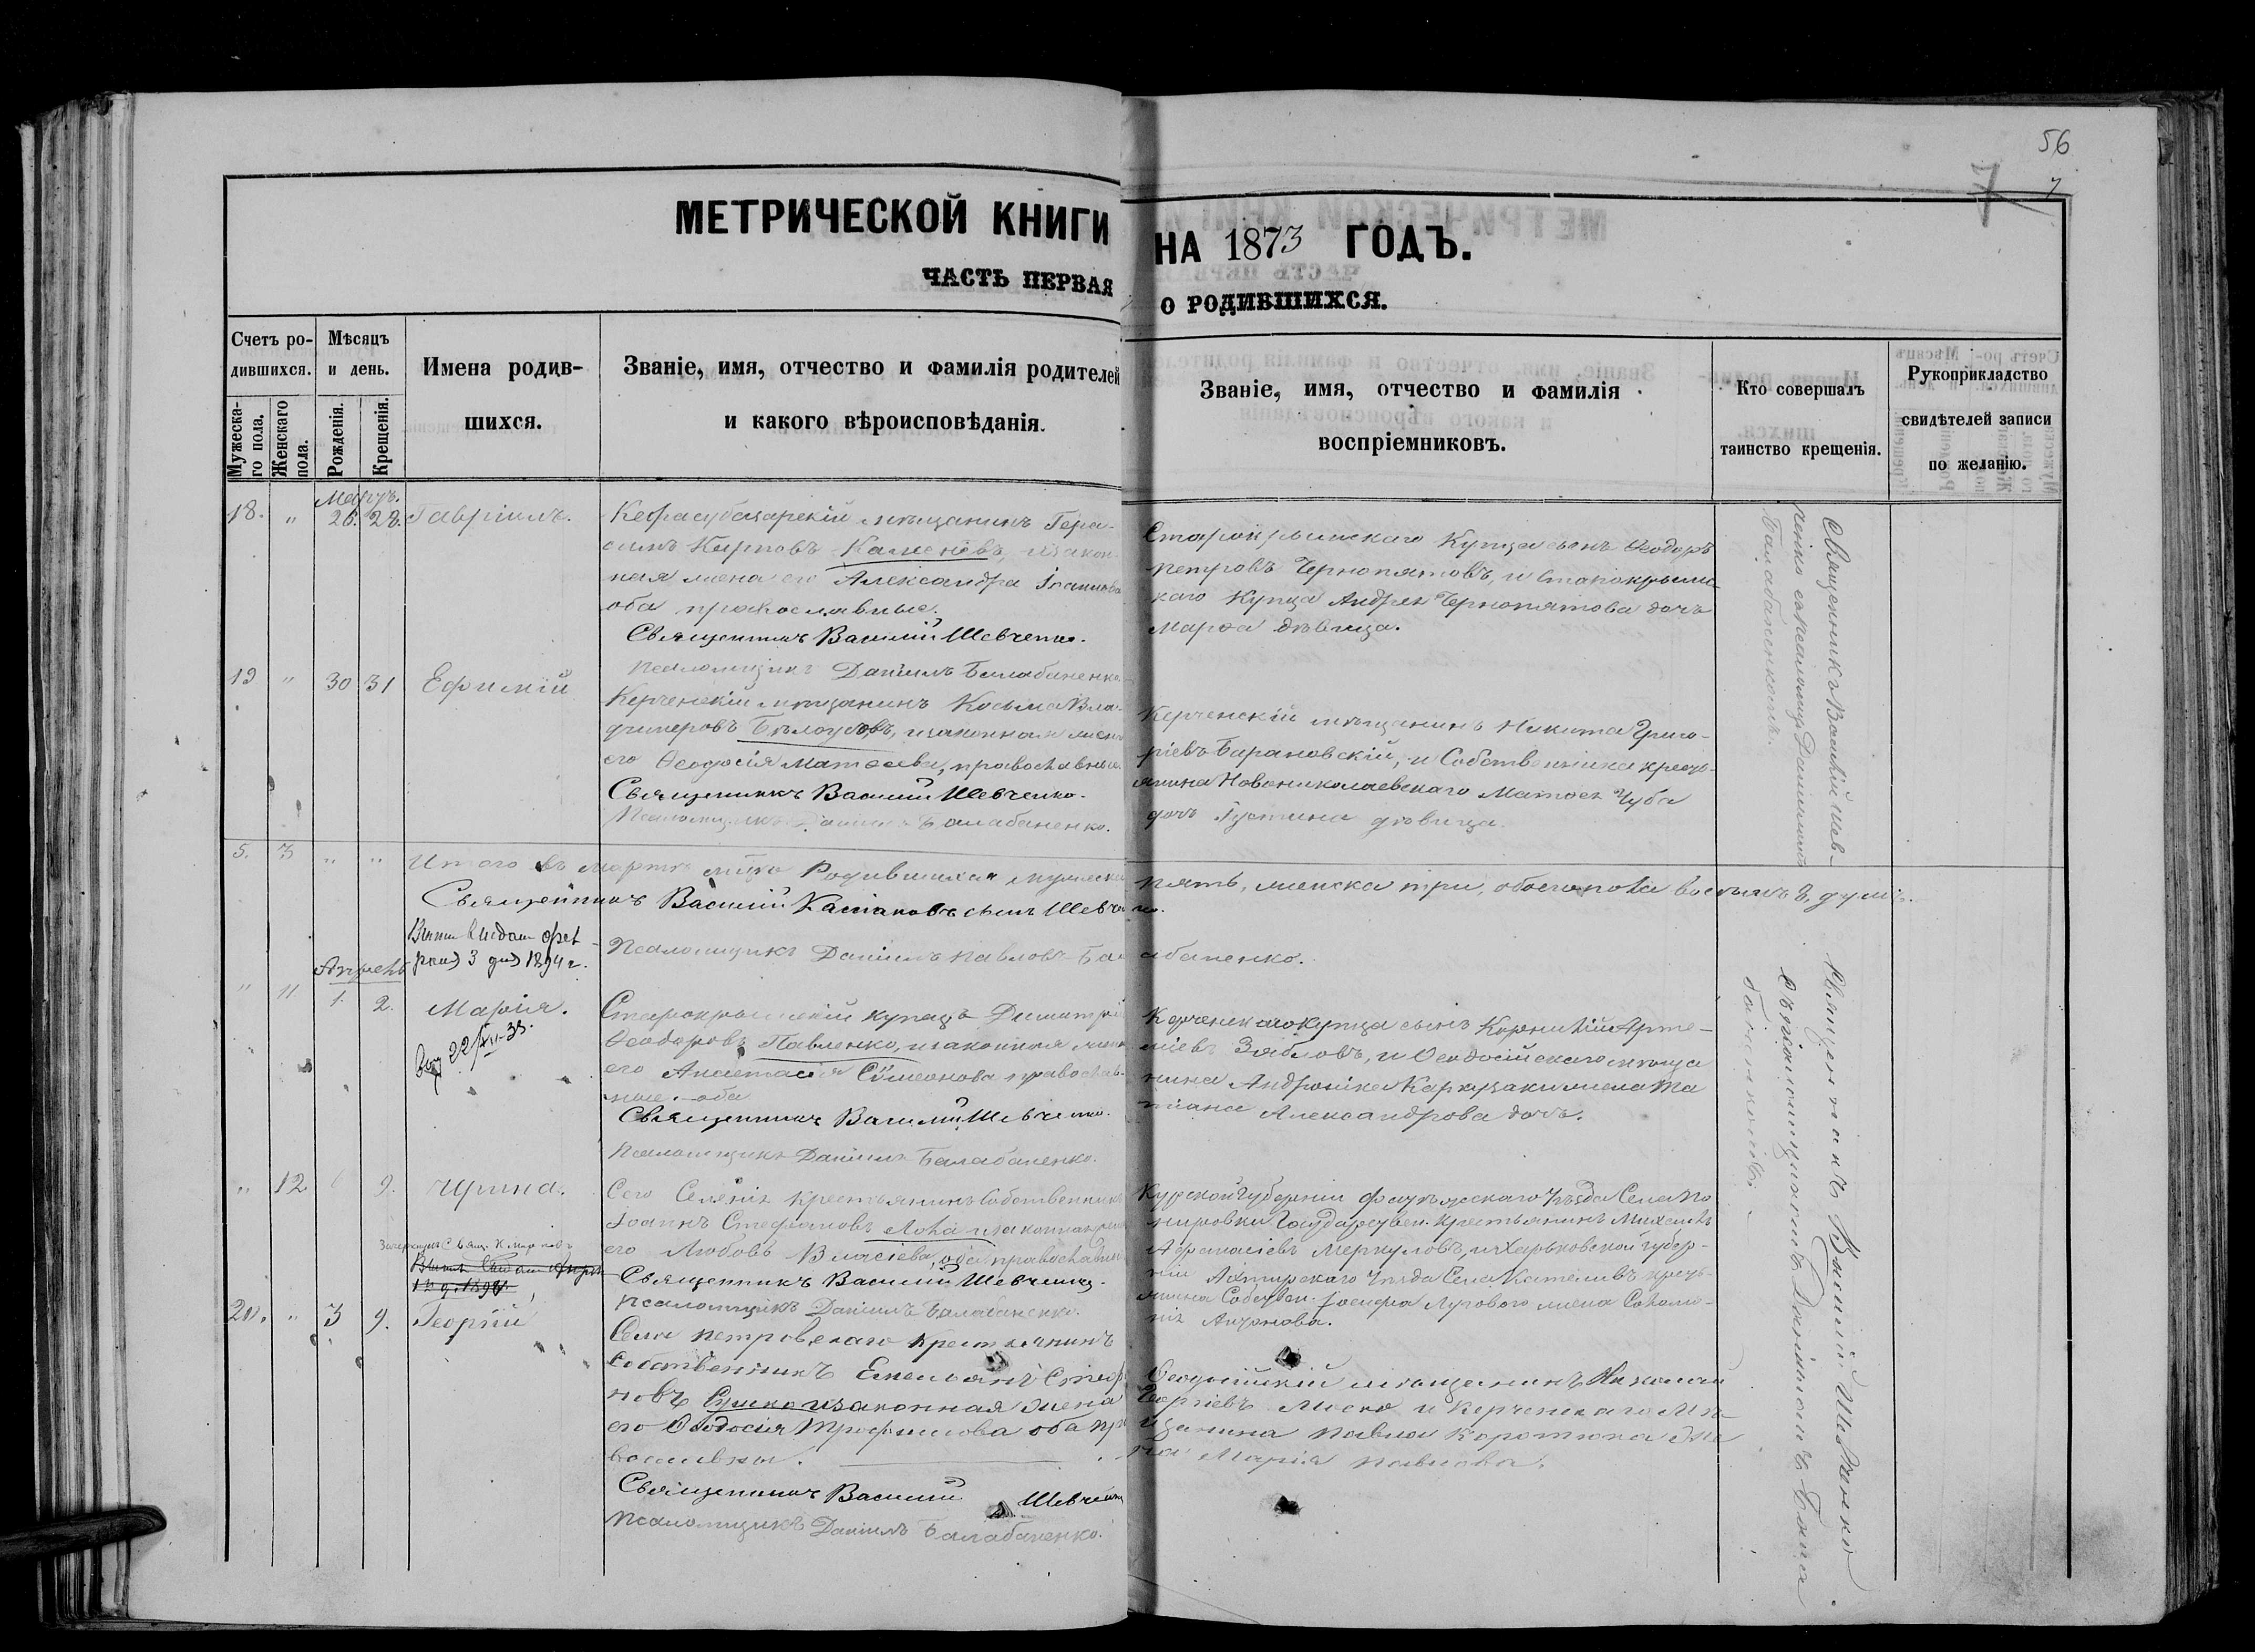 56
7
7
МЕТРИЧЕСКОЙ КНИГИ НА 1873 ГОДЪ.
ЧАСТЬ ПЕРВАЯ О РОДИВШИХСЯ.
Счетъ ро-
дившихся.
Мужеска-
го пола.
Женскаго
пола.
Мѣсяцъ
и день.
Рожденія.
Крещенія.
Имена родив-
шихся.
Званіе, имя, отчество и фамилія родителей
и какого вѣроисповѣданія.
Званіе, имя, отчество и фамилія
воспріемниковъ.
Кто совершалъ
таинство крещенія.
Рукоприкладство
свидѣтелей записи
по желанію.
Мартъ.
18. " 26. 28. Гавріилъ.
мѣщанинъ Гера-
симъ Карповъ Каменевъ, и закон-
ная жена его Александра Іоаннова
оба православные.
Священникъ Василій Шевченко.
Псаломщикъ Даніилъ Балабаненко.
Старокрымскаго Купца сынъ Ѳеодоръ
Петровъ Чернопятовъ, и Старокрымс-
каго Купца Андрея Чернопятова дочь
Марѳа дѣвица.
Священникъ Василій Шев-
ченко съ псаломщ. Даніиломъ
Балабаненкомъ.
19 " 30 31 Ефимій
Керченскій мѣщанинъ Косьма Вла-
димеровъ Бѣлоусовъ, и законная жена
его Ѳеодосія Матѳеева, православные
Священникъ Василій Шевченко.
Псаломщикъ Даніилъ Балабаненко.
Керченскій мѣщанинъ Никита Григо-
ріевъ Барановскій, и Собственника кресть-
янина Новониколаевскаго Матѳея Чуба
дочь Іустина дѣвица.
5. 3 " " Итого въ мартѣ м-цѣ Родившихся мужеска пять, женска три, обоего пола восемь душъ.
Священникъ Василій Касіановъ сынъ Шевченко.
Псаломщикъ Даніилъ Павловъ Балабаненко.
3 дня 1894 г.
Апрель
" 11 1. 2. Марія.
22/XII-33.
Старокрымскій купецъ Димитрій
Ѳеодоровъ Павленко, и законная жена
его Анастасія Симеонова православ-
ные оба
Священникъ Василій Шевченко.
Псаломщикъ Даніилъ Балабаненко.
Керченскаго купца сынъ Корнилій Арте-
міевъ Зябловъ, и Ѳеодосійскаго мѣща
нина Андроника жена Та
тіана Александрова дочь.
" 12 9. Ирина.
Сего Селенія крестьянинъ Собственникъ
Іоаннъ Стефановъ Лоха и законная жена
его Любовь Власіева, оба православн.
Священникъ Василій Шевченко.
Псаломщикъ Даніилъ Балабаненко.
Курской губерніи Фатежскаго Уѣзда Села По
ныровки Государствен. крестьянинъ Михаилъ
Афанасіевъ Меркуловъ, и Харьковской губер-
ніи Ахтирскаго Уѣзда Села Котельвъ кресть-
янина Собствен. Іосифа Лугового жена Соломо-
нія Антонова.
20. " 3 9. Георгій
Села Петровскаго Крестьянинъ
Собственникъ Емельянъ Стефа
новъ и законная жена
его Ѳеодосія Трофимова оба пра
вославны.
Священникъ Василій Шевченко
Псаломщикъ Даніилъ Балабаненко.
Ѳеодосійскій мѣщанинъ Николай
Георгіевъ и Керченскаго Мѣ-
щанина Павла Коротюка же
на Марія Павлова.
Священникъ Василій Шевченко
съ псаломщикомъ Даніиломъ Бала
баненкомъ.